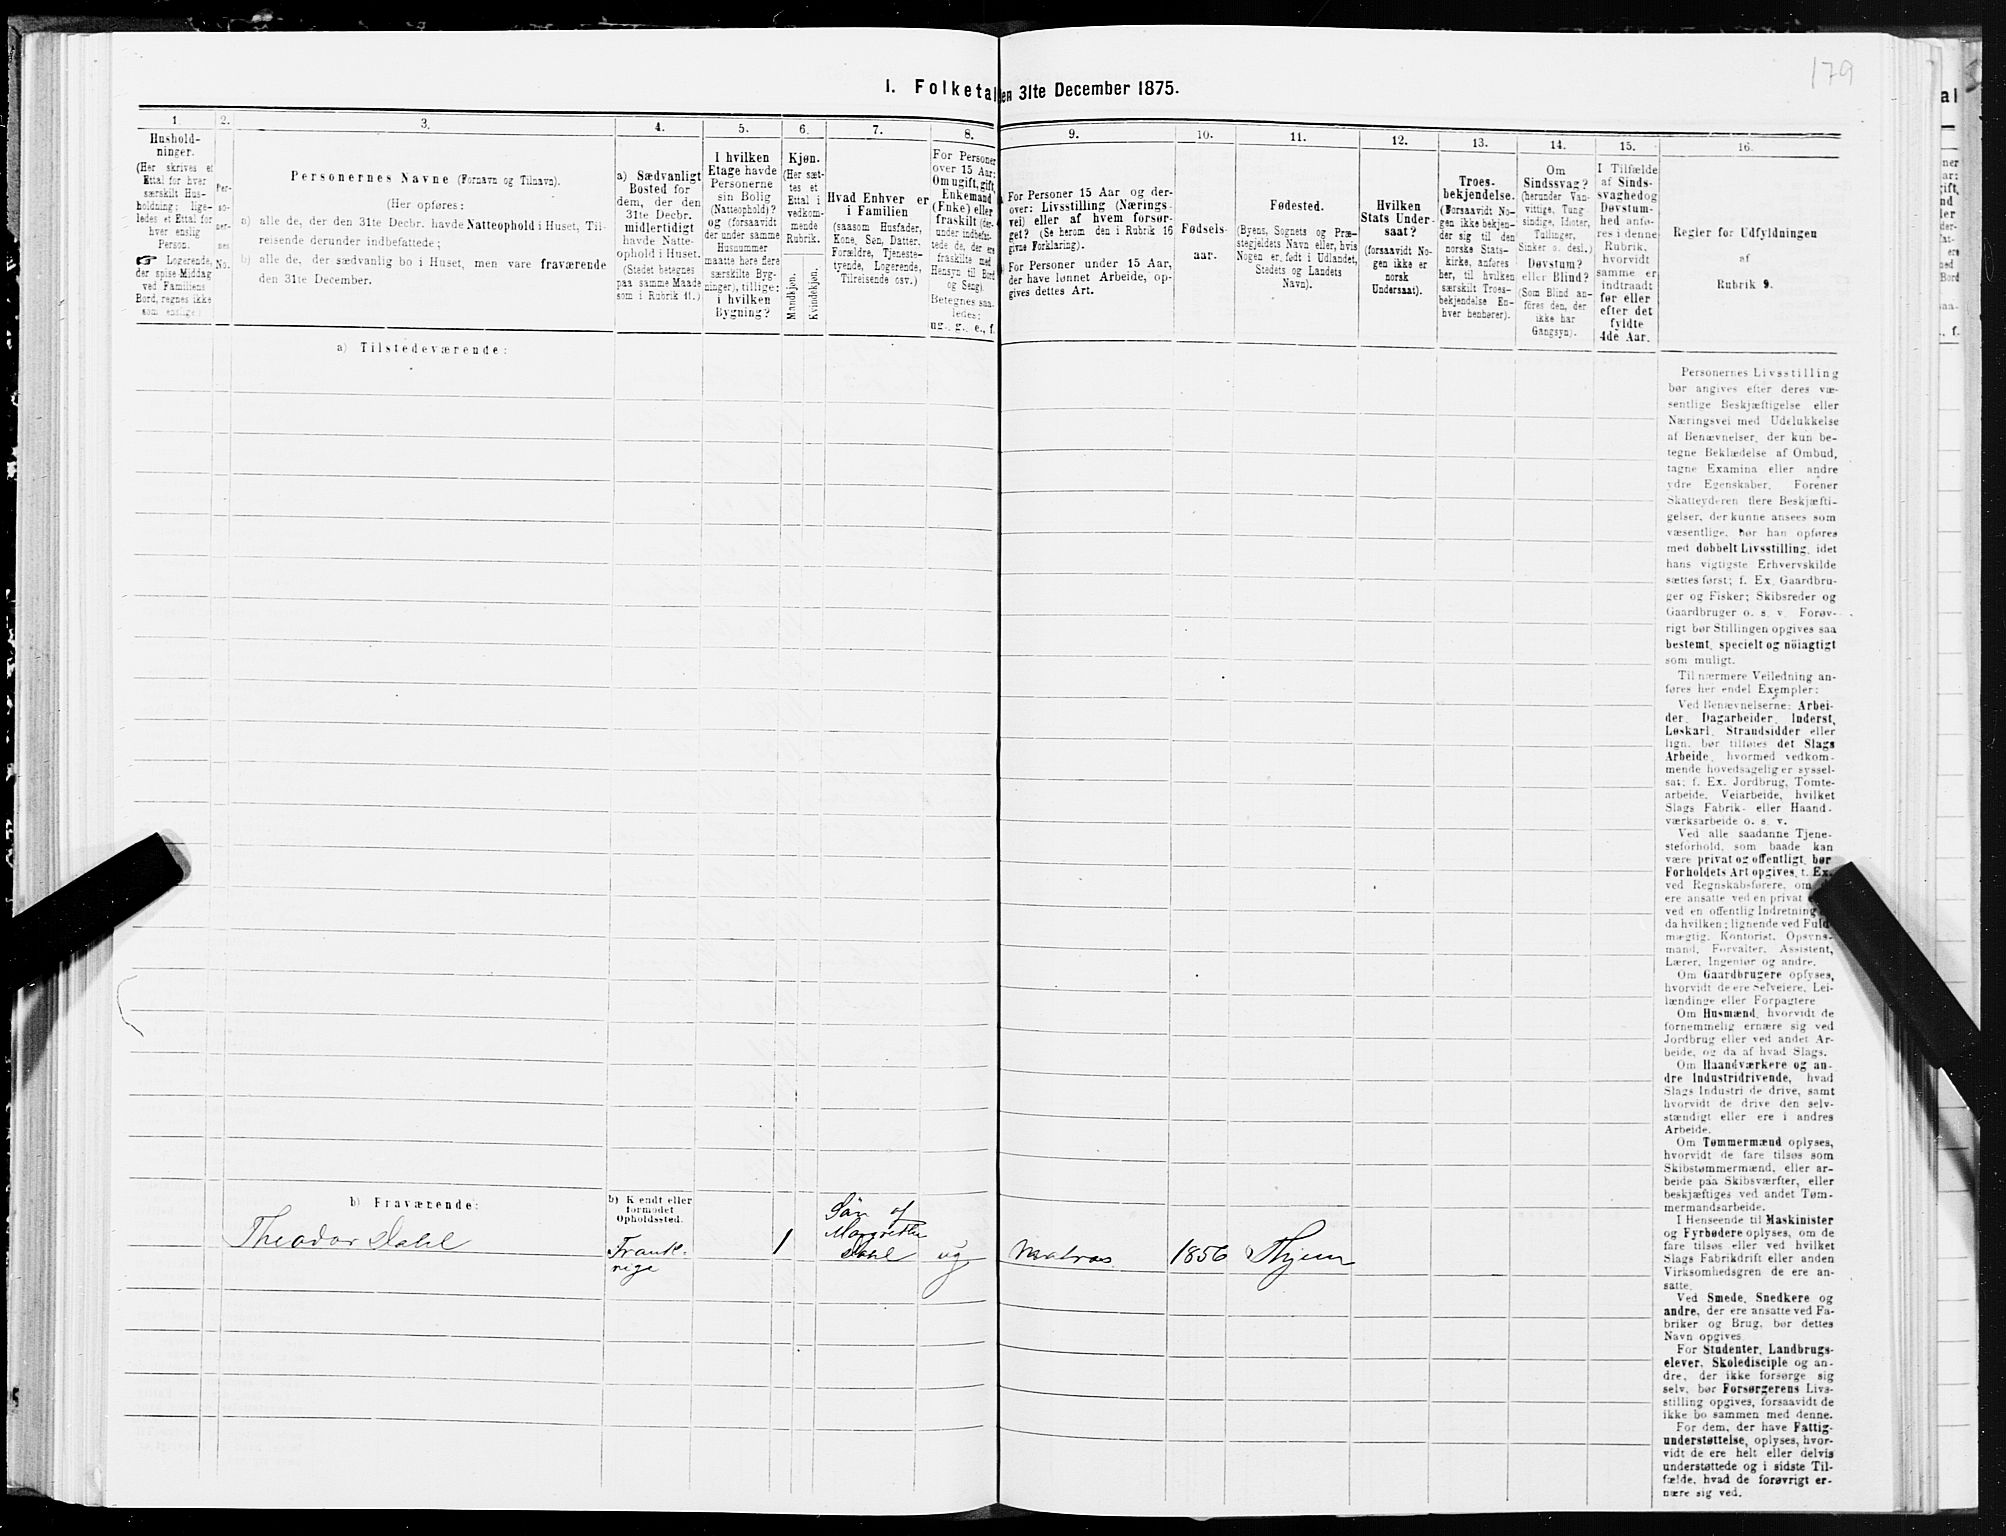 179
I. Folketal den 31te December 1875.
1.
2.
3.
4.
5.
6.
7.
8.
9.
10.
11.
12.
13.
14.
15.
16.
Hushold-
ninger.
(Her skrives et
Ettal for hver
særskilt Hus-
holdning; lige-
ledes et Ettal for
hver enslig
Person.
☞ Logerende,
der spise Middag
ved Familiens
Bord, regnes ikke
som enslige.)
Per-
so-
ner-
nes
No.
Personernes Navne (Fornavn og Tilnavn).
(Her opføres:
a) alle de, der den 31te Decbr. havde Natteophold i Huset, Til-
reisende derunder indbefattede;
b) alle de, der sædvanlig bo i Huset, men vare fraværende
den 31te December.
a) Sædvanligt
Bosted for
dem, der den
31te Decbr.
midlertidigt
havde Natte-
ophold i Huset.
(Stedet betegnes
paa samme Maade
som i Rubrik 11.)
I hvilken
Etage havde
Personerne
sin Bolig
(Natteophold)?
og (forsaavidt
der under samme
Husnummer
maatte høre flere
særskilte Byg-
ninger), tillige:
i hvilken
Bygning?
Kjøn.
(Her sæt-
tes et
Ettal i
vedkom-
mende
Rubrik.
Mandkjøn.
Kvindekjøn.
Hvad Enhver er
i Familien
(saasom Husfader,
Kone, Søn, Datter,
Forældre, Tjeneste-
tyende, Logerende,
Tilreisende osv.)
For Personer
over 15 Aar:
Om ugift, gift,
Enkemand
(Enke) eller
fraskilt (der-
under indbefat-
tede de, der ere
fraskilte med
Hensyn til Bord
og Seng).
Betegnes saa-
ledes:
ug., g., e., f.
For Personer 15 Aar og der-
over: Livsstilling (Nærings-
vei) eller af hvem forsør-
get? (Se herom den i Rubrik 16
givne Forklaring).
For Personer under 15 Aar,
der have lønnet Arbeide, op-
gives dettes Art.
Fødsels-
aar.
Fødested.
(Byens, Sognets og Præ-
stegjeldets Navn eller, hvis
Nogen er født i Udlandet,
Stedets og Landets
Navn).
Hvilken
Stats Under-
saat?
(forsaavidt No-
gen ikke er
norsk
Undersaat).
Troes-
bekjendelse.
(Forsaavidt No-
gen ikke bekjen-
der sig til den
norske Stats-
kirke, anføres
her, til hvilken
særskilt Troes-
bekjendelse En-
hver henhører).
Om
Sindssvag?
(herunder Van-
vittige, Tung-
sindige, Idioter,
Tullinger,
Sinker o. desl.)
Døvstum?
eller Blind?
(Som Blind an-
føres den, der
ikke har
Gangsyn).
I Tilfælde
af Sinds-
svaghed og
Døvstum-
hed anfø-
res i denne
Rubrik,
hvorvidt
samme er
indtraadt
før eller
efter det
fyldte
4de Aar.
Regler for Udfyldningen
af
Rubrik 9.
a) Tilstedeværende:
Personernes Livsstilling
bør angives efter deres væ-
sentlige Beskjæftigelse eller
Næringsvei med Udelukkelse
af Benævnelser, der kun be-
tegne Beklædelse af Ombud,
tagne Examina eller andre
ydre Egenskaber. Forener
Skatteyderen flere Beskjæfti-
gelser, der kunne ansees som
væsentlige, bør han opføres
med dobbelt Livsstilling, idet
hans vigtigste Erhvervskilde
sættes først; f. Ex. Gaardbru-
ger og Fisker; Skibsreder og
Gaardbruger o. s. v. Forøv-
rigt bør Stillingen opgives saa
bestemt, specielt og nöiagtigt
som muligt.
Til nærmere Veiledning an-
føres her endel Exempler:
Ved Benævnelserne: Arbei-
der, Dagarbeider, Inderst,
Løskarl, Strandsidder eller
lign. bør tilføies det Slags
Arbeide, hvormed vedkom-
mende hovedsagelig er syssel-
sat; f. Ex. Jordbrug, Tomte-
arbeide, Veiarbeide, hvilket
Slags Fabrik- eller Haand-
værksarbeide o. s. v.
Ved alle saadanne Tjene-
steforhold, som baade kan
være privat og offentligt, bør
Forholdets Art opgives, f. Ex.
ved Regnskabsførere, om
ere ansatte ved en privat
ved en offentlig Indretning
da hvilken; lignende ved Fuld-
mægtig, Kontorist, Opsyns-
mand, Forvalter, Assistent,
Lærer, Ingeniør og andre.
Om Gaardbrugere oplyses,
hvorvidt de ere Selveiere, Lei-
lændinge eller Forpagtere
Om Husmænd, hvorvidt de
fornemmelig ernære sig ved
Jordbrug eller ved andet Ar-
beide, og da af hvad Slags.
Om Haandværkere og an-
dre Industridrivende, hvad
Slags Industri de drive, samt
hvorvidt de drive den selv-
stændigt eller ere i andres
Arbeide.
Om Tømmermænd oplyses,
hvorvidt de fare tilsøs som
Skibstømmermænd, eller ar-
beide paa Skibsværfter, eller
beskjæftiges ved andet Tøm-
mermandsarbeide.
I Henseende til Maskinister
og Fyrbødere oplyses, om de
fare tilsøs eller ved hvilket
Slags Fabrikdrift eller anden
Virksomhedsgren de ere an-
satte.
Ved Smede, Snedkere og
andre, der ere ansatte ved Fa-
briker og Brug, bør dettes
Navn opgives.
For Studenter, Landbrugs-
elever, Skoledisciple og an-
dre, der ikke forsørge sig
selv, bør Forsørgerens Livs-
stilling opgives, forsaavidt de
ikke bo sammen med denne.
For dem, der have Fattig-
understøttelse, oplyses, hvor-
vidt de ere helt eller delvis
understøttede og i sidste Til-
fælde, hvad de forøvrigt er-
nære sig ved.
b) Fraværende:
b) Kjendt eller
formodet
Opholdssted.
Theodor Dahl
Frank-
rige
1
Søn af
Margrethe
Dahl
ug
Matros
1856
Thjem